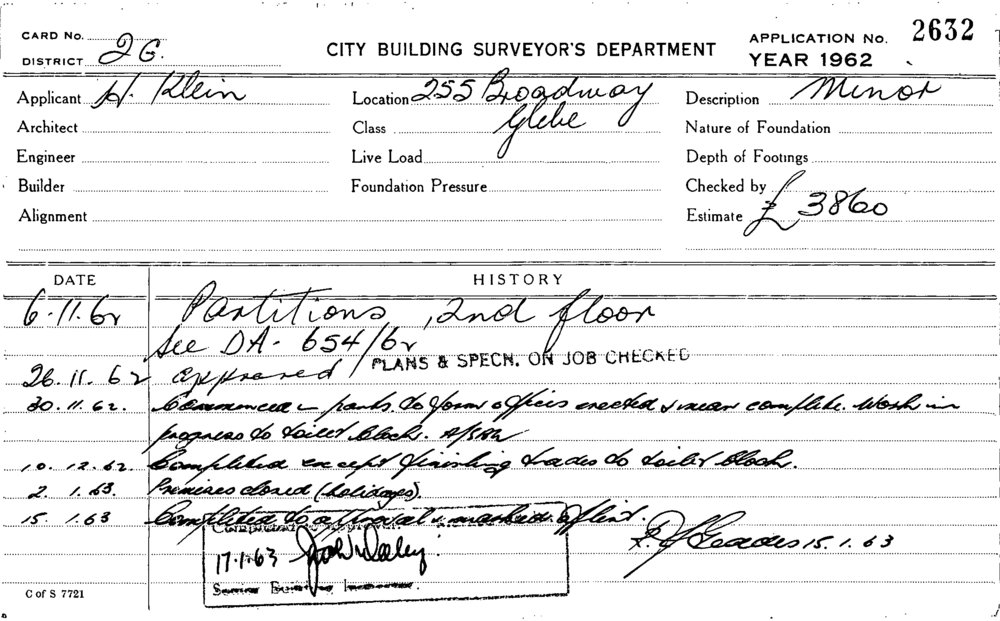 CARD No.
DISTRICT 2G.
CITY BUILDING SURVEYOR'S DEPARTMENT
APPLICATION No. 2632
YEAR 1962
Applicant H. Klein
Location 255 Broadway
Description Minor
Architect
Class Glebe
Nature of Foundation
Engineer
Live Load
Depth of Footings
Builder
Foundation Pressure
Checked by
Alignment
Estimate £ 3860
DATE HISTORY
6.11.62 Partitions, 2nd floor
See DA. 654/62
26.11.62 approved / PLANS & SPECN. ON JOB CHECKED
30.11.62. Commenced - partns. to form offices erected & near complete. Work in
progress to toilet block.
10.12.62 Completed except finishing trades to toilet block.
2. 1.63. Premises closed (holidays).
15. 1.63 Completed to approval &
Completed to Approval.
17.1.63
15.1.63
Senior Building Inspector
C of S 7721